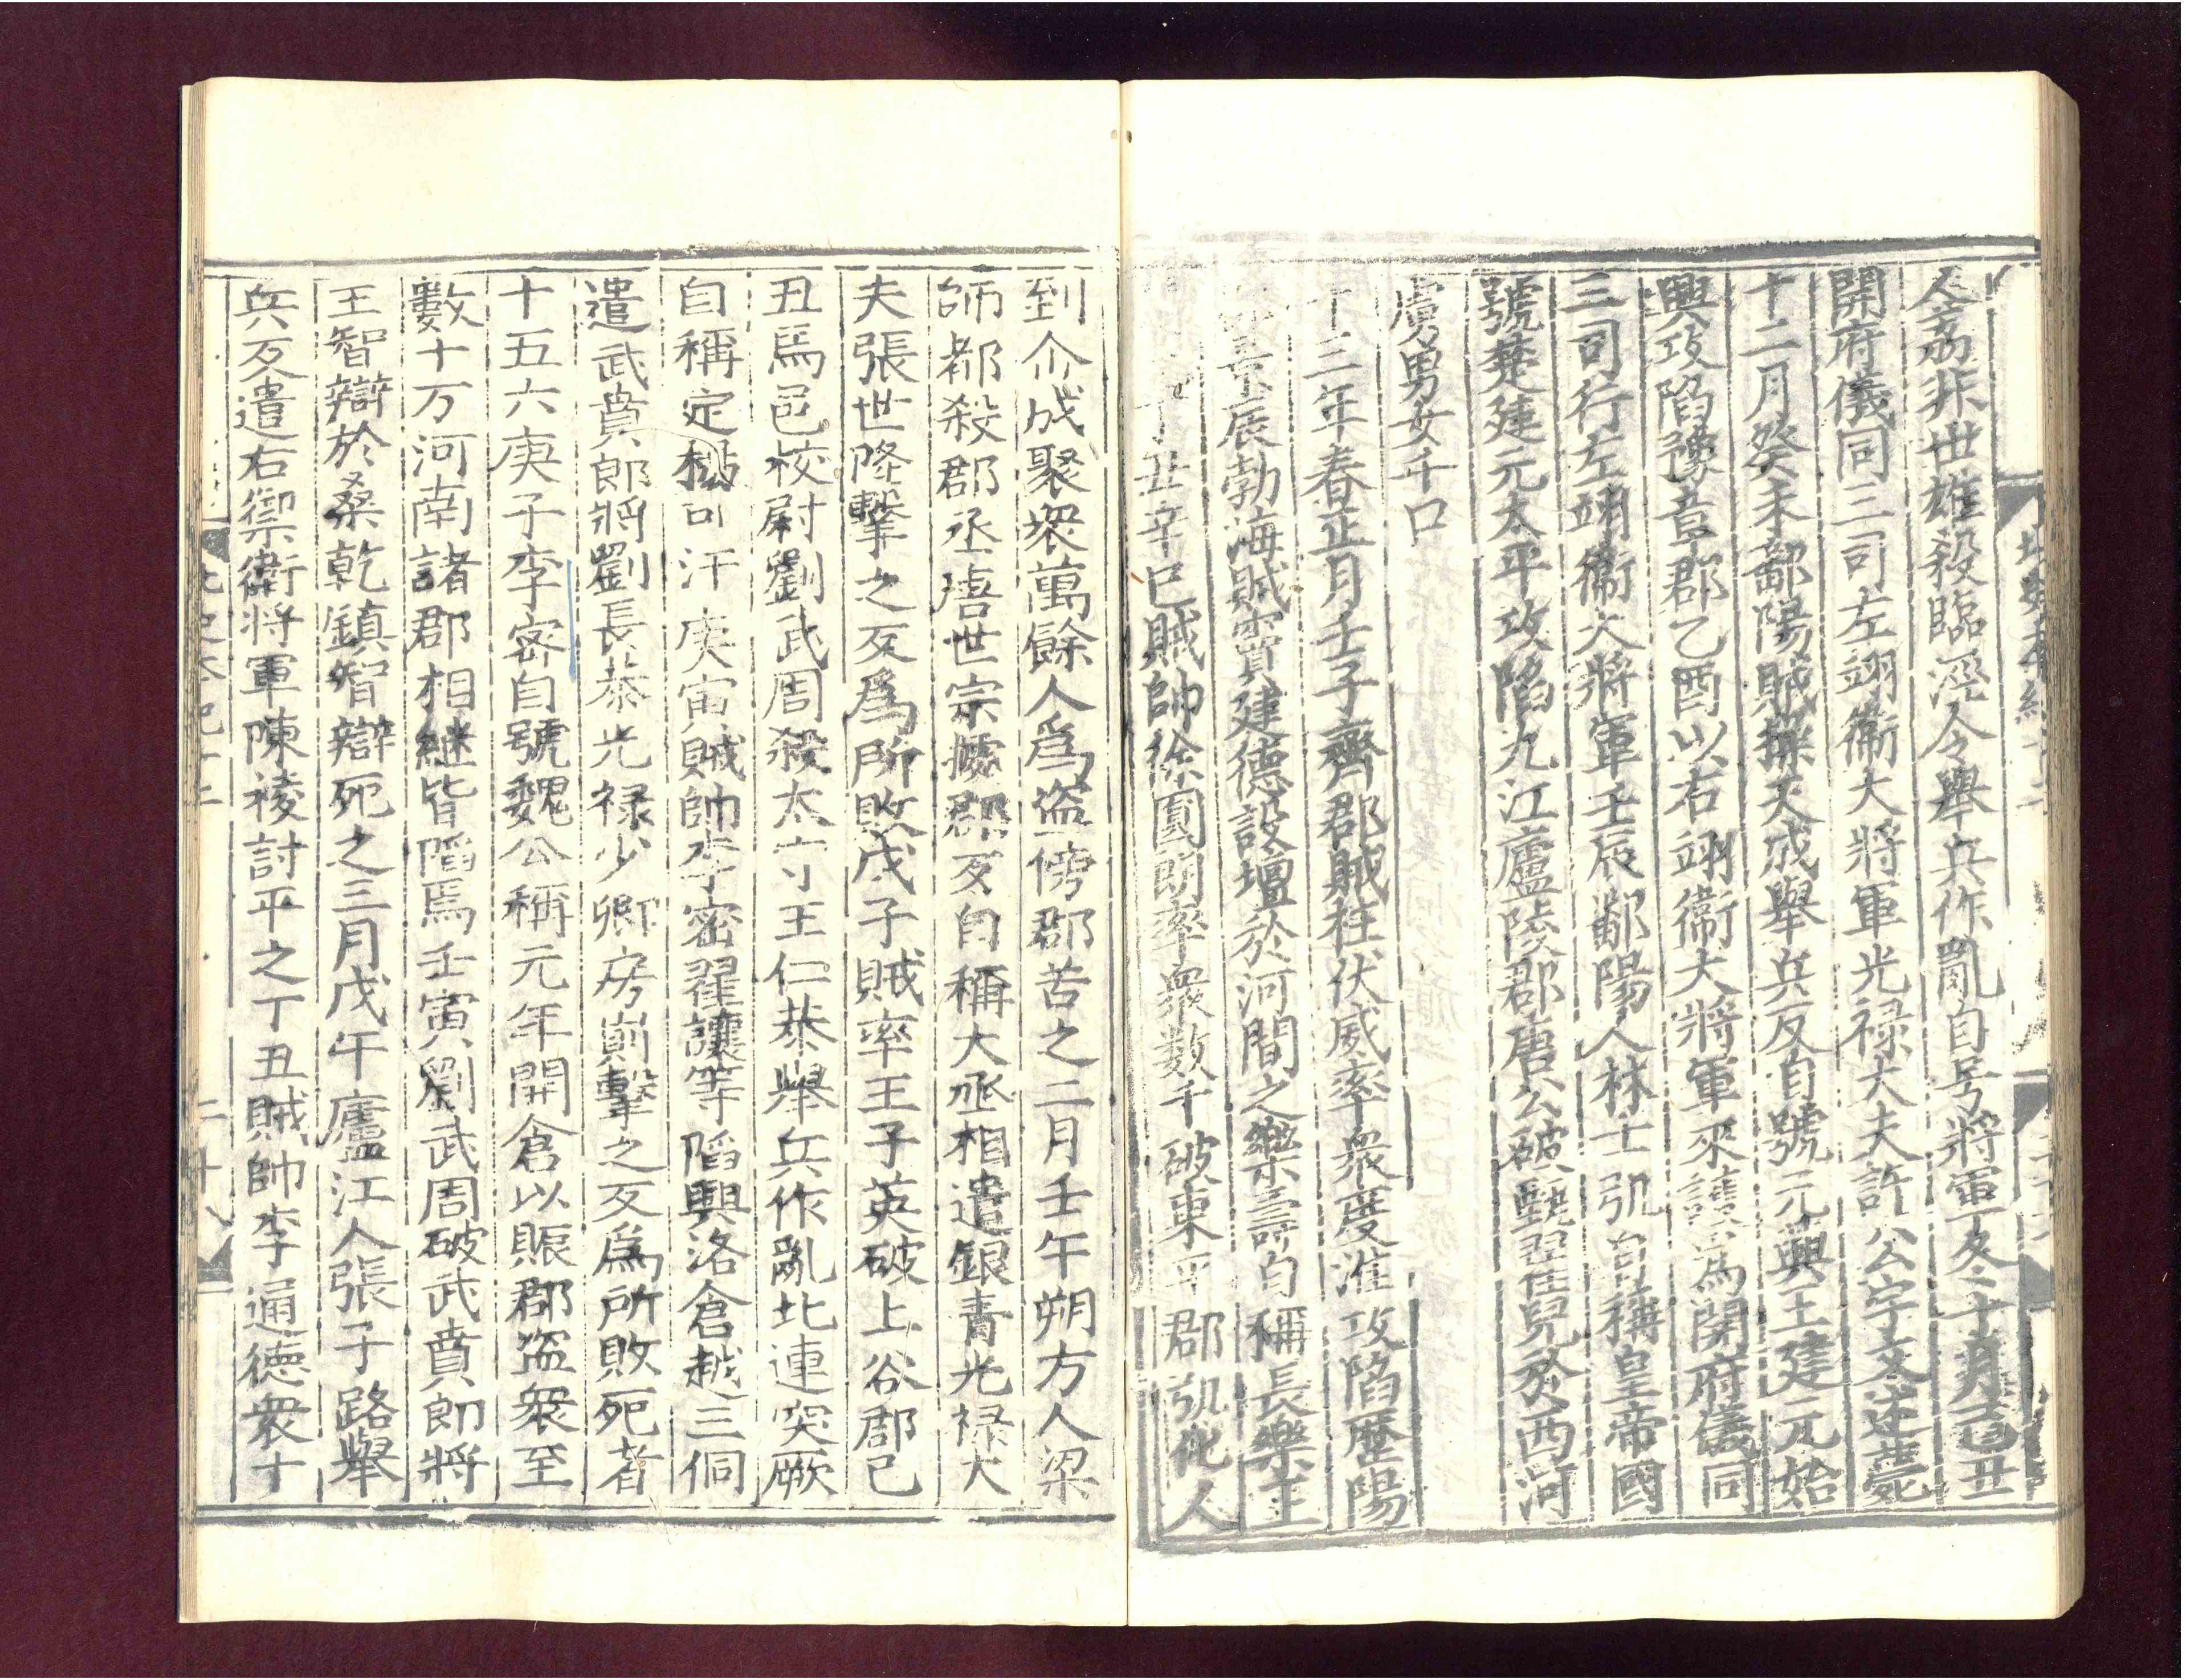 人荔非世雄殺臨涇令舉兵作亂自号將軍冬十月己丑
開府儀同三司左翊衞大將軍光禄大夫許公宇文述薨
十二月癸未鄱陽賊操天成舉兵反自號元興王建元始
興攻陷豫章郡乙酉以右翊衞大將軍來護爲開府儀同
三司行左翊衞大將軍壬辰鄱陽人林士弘自稱皇帝國
號楚建元太平攻陷九江廬陵郡唐公破甄翟兒於西河
虜男女千口
十三年春正月壬子齊郡賊杜伏威率衆度淮攻陷歷陽
辰勃海賊竇建德設壇於河間之樂壽自稱長樂王
丁丑辛巳賊帥徐圓朗率衆数千破東平郡弘化人
到㑹成聚衆萬餘人爲盗傍郡苦之二月壬午朔方人梁
師都殺郡丞唐世宗據郡反自稱大丞相遣銀青光禄大
夫張世隆擊之反爲所敗戊子賊率王子英破上谷郡己
丑馬邑校尉劉武周殺太守王仁恭舉兵作亂北連突厥
自稱定楊可汗庚寅賊帥李密翟讓等陷興洛倉越王侗
遣武賁郎將劉長恭光禄少卿房崱擊之反爲所敗死者
十五六庚子李密自號魏公稱元年開倉以賑郡盗衆至
數十万河南諸郡相継皆陷焉壬寅劉武周破武賁郎將
王智辯於桑乾鎮智辯死之三月戊午廬江人張子路舉
兵反遣右禦衞將軍陳稜討平之丁丑賊帥李通德衆十
北史本紀十二
二十八